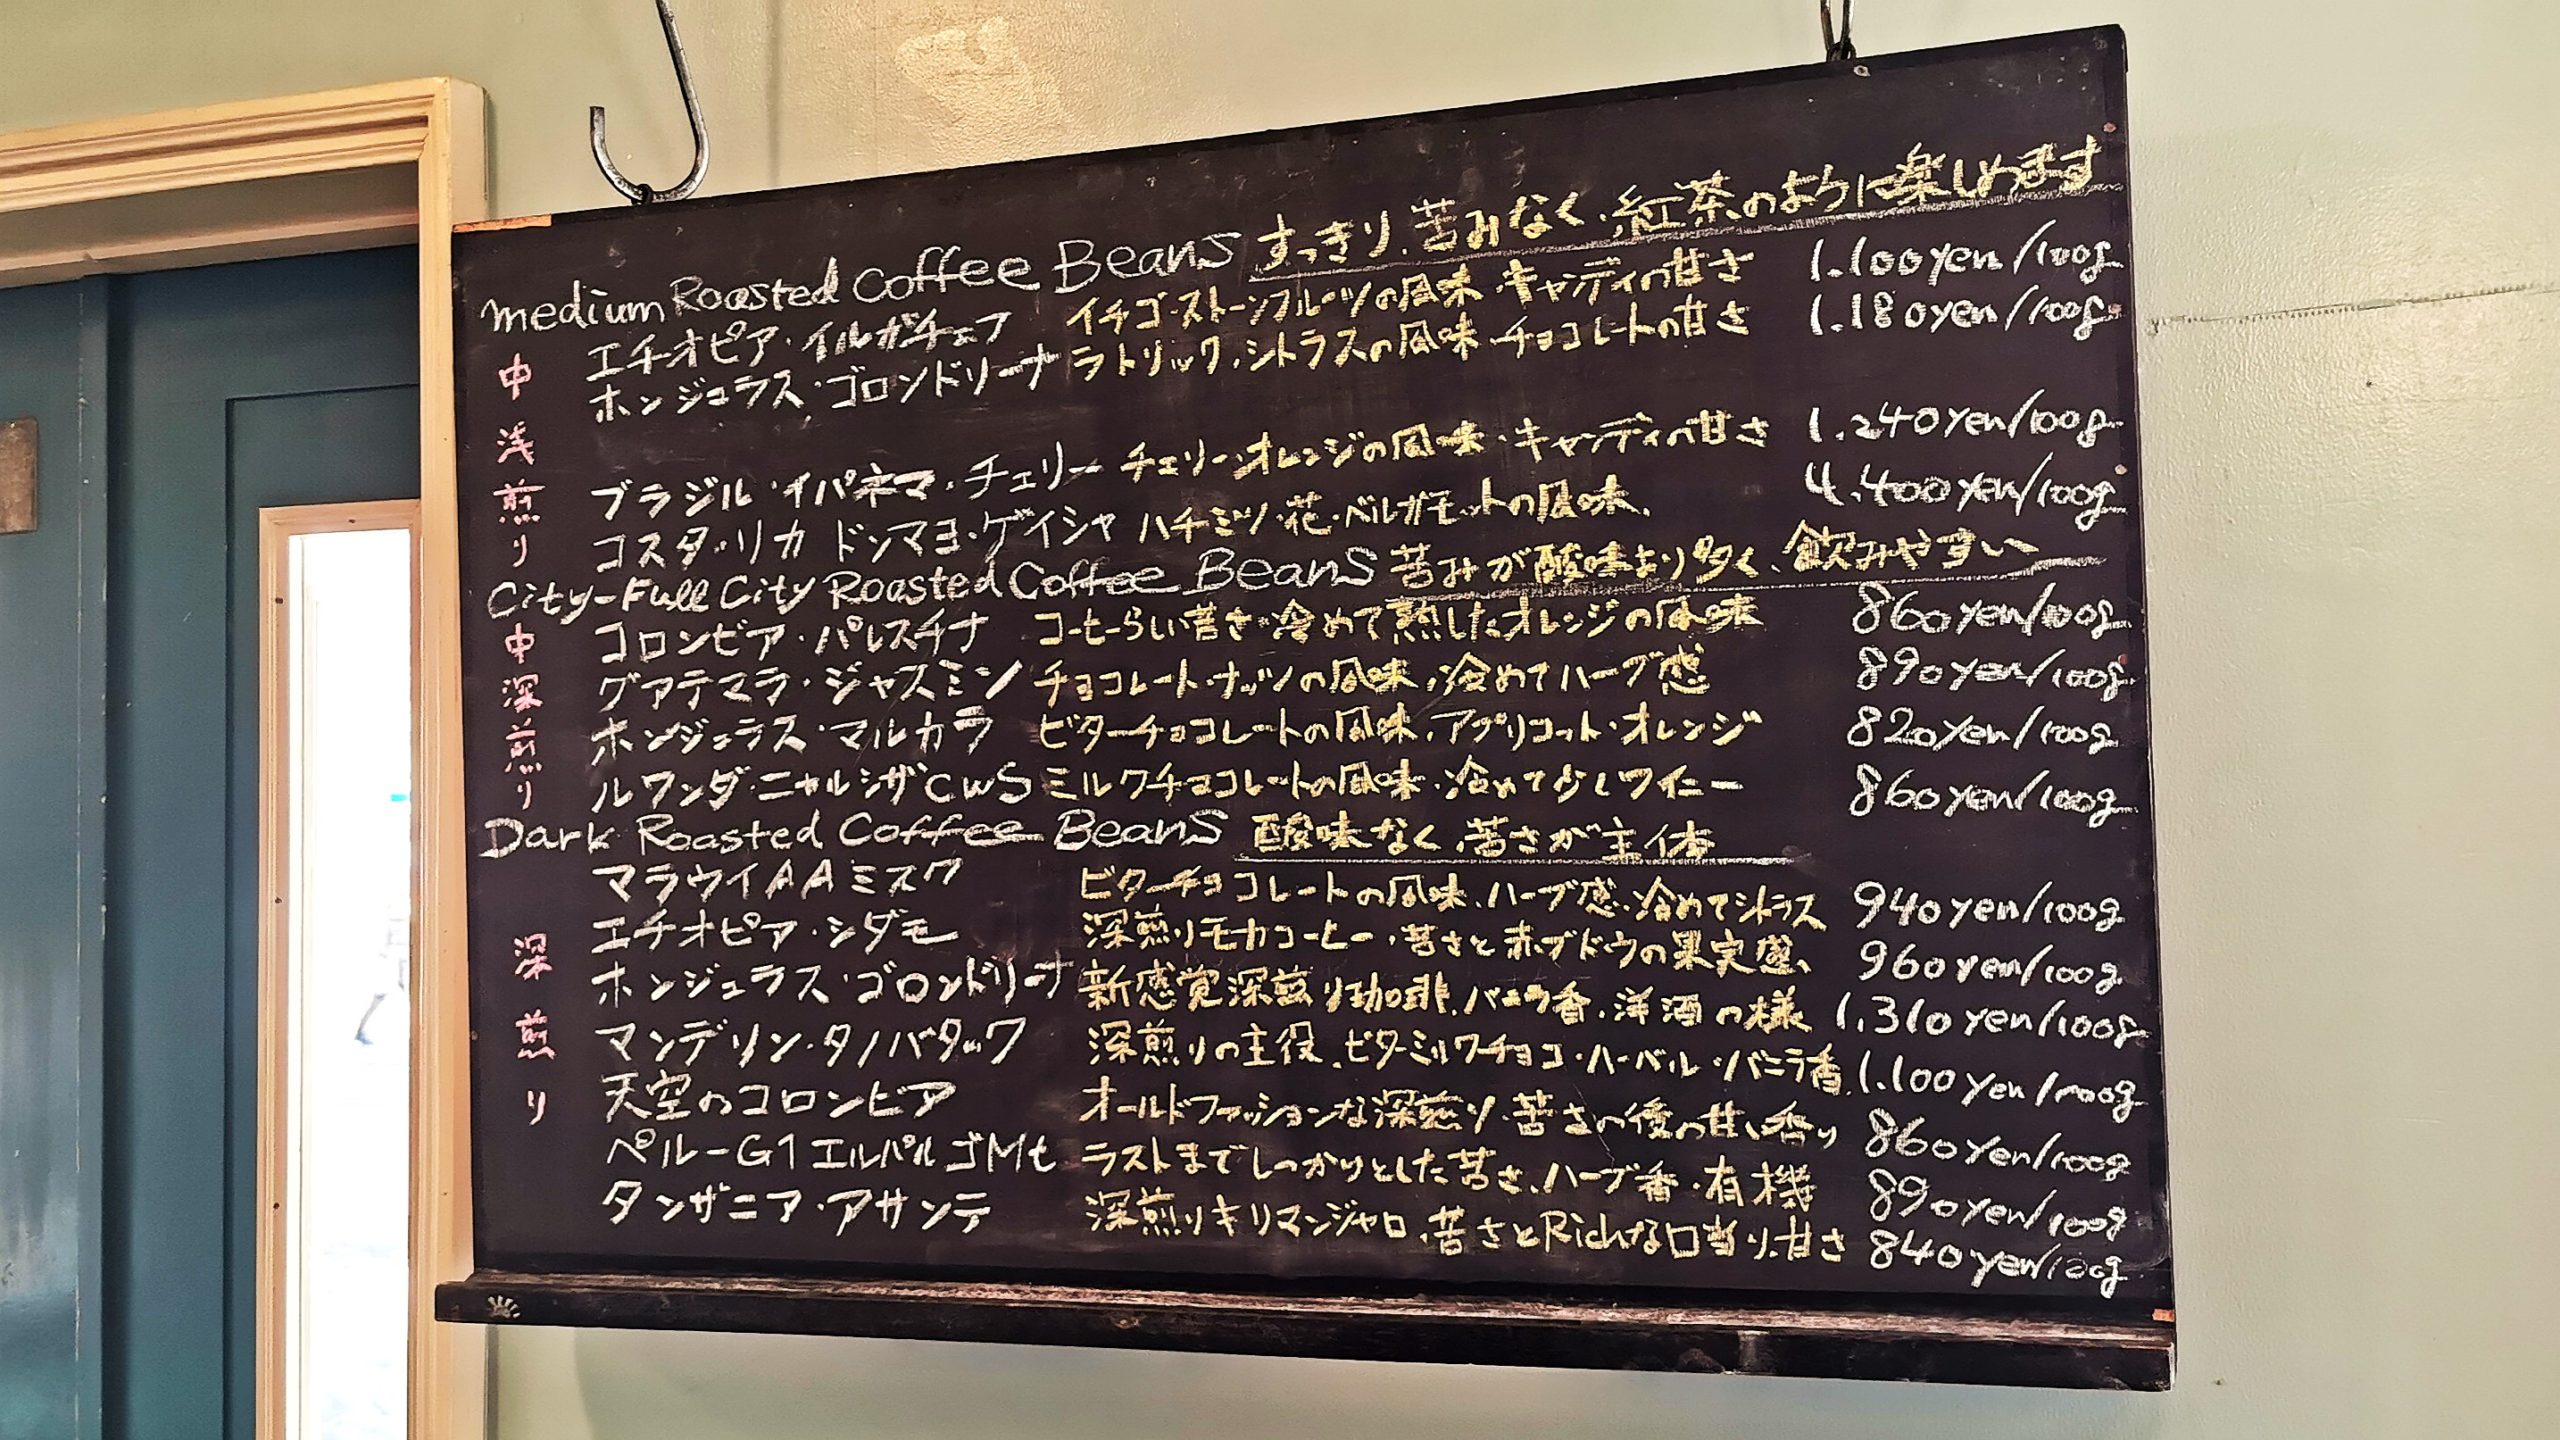 medium Roasted Coffee Beans すっきり、苦みなく、紅茶のように楽しめます
中浅煎り
エチオピア・イルガチェフ イチゴ・ストーンフルーツの風味・キャンディの甘さ 1.100yen/100g
ホンジュラス・ゴロンドリーナ ラトリック、シトラスの風味、チョコレートの甘さ 1.180yen/100g
ブラジル・イパネマ・チェリー チェリー・オレンジの風味・キャンディの甘さ 1.240yen/100g
コスタ・リカ ドンマヨ・ゲイシャ ハチミツ・花・ベルガモットの風味、 4.400yen/100g
City-Full City Roasted Coffee Beans 苦みが酸味より多く、飲みやすい
中深煎り
コロンビア・パレスチナ コーヒーらしい苦さ・冷めて熟したオレンジの風味 860yen/100g
グアテマラ・ジャスミン チョコレート・ナッツの風味、冷めてハーブ感 890yen/100g
ホンジュラス・マルカラ ビターチョコレートの風味、アプリコット・オレンジ 820yen/100g
ルワンダ・ニャルシザCWS ミルクチョコレートの風味・冷めて少しワイニー 860yen/100g
Dark Roasted Coffee Beans 酸味なく、苦さが主体
深煎り
マラウイAAミスク ビターチョコレートの風味、ハーブ感、冷めてシトラス 940yen/100g
エチオピア・シダモ 深煎りモカコーヒー・苦さと赤ブドウの果実感、 960yen/100g
ホンジュラス・ゴロンドリーナ 新感覚深煎り珈琲、バニラ香、洋酒の様 1.310yen/100g
マンデリン・タノバタック 深煎りの主役、ビターミルクチョコ・ハーバル・バニラ香 1.100yen/100g
天空のコロンビア オールドファッションな深煎り・苦さの後の甘い香り 860yen/100g
ペルーG1エルパルゴMt ラストまでしっかりとした苦さ、ハーブ香・有機 890yen/100g
タンザニア・アサンテ 深煎りキリマンジャロ、苦さとRichな口当り、甘さ 840yen/100g